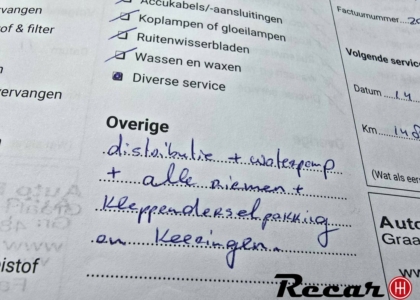 Accukabels/-aansluitingen
Koplampen of gloeilampen
Ruitenwisserbladen
Wassen en waxen
Diverse service
Overige
distributie + waterpomp
+ alle riemen +
Kleppendekselpakking
en keeringen.
vangen
of & filter
n
ervangen
n
istof
Factuurnummer
Volgende servic
Datum 14
Km 148
(Wat als eer
Auto
Graa
ww
Recar